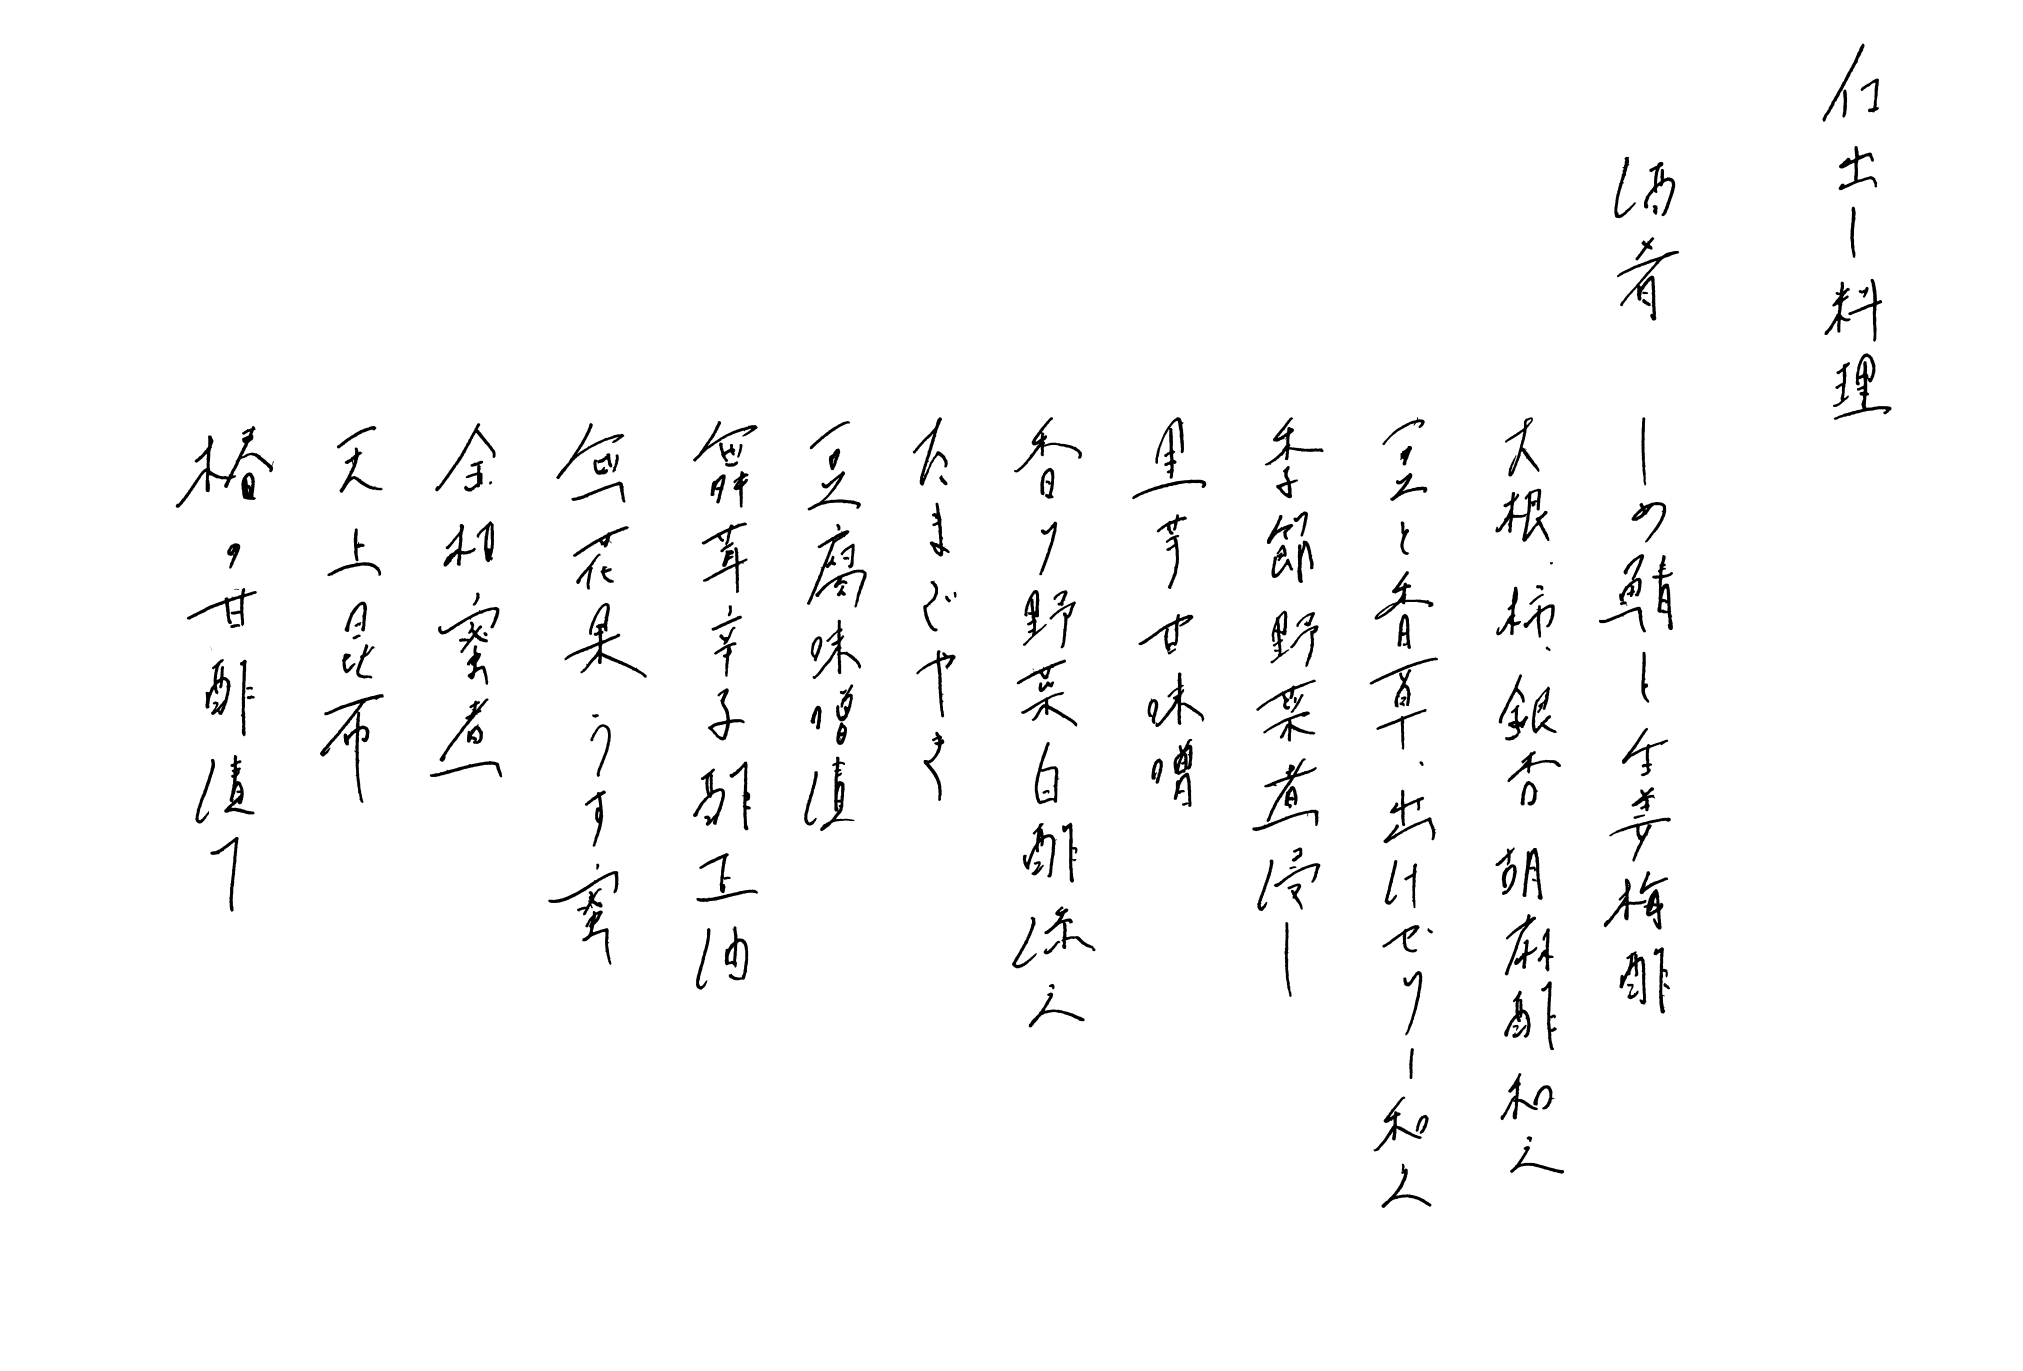 仕出し料理
酒肴
しめ鯖と生姜梅酢
大根、柿、銀杏 胡麻酢和え
と香草、出汁ゼリー和え
季節野菜煮浸し
里芋甘味噌
香り野菜白酢添え
たまごやき
豆腐味噌漬
舞茸辛子酢正油
無花果 うす蜜
金柑蜜煮
天上昆布
椿の甘酢漬け